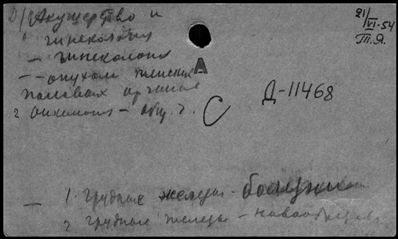 1) Акушерство и
гинекология
– гинекология
– – опухоли женских
половых органов
2 Онкология – общ. ч.
А
С
21/VI-54
Т.Я.
Д-11468
– 1. грудные железы – болезни
2 грудные железы – новообразов.